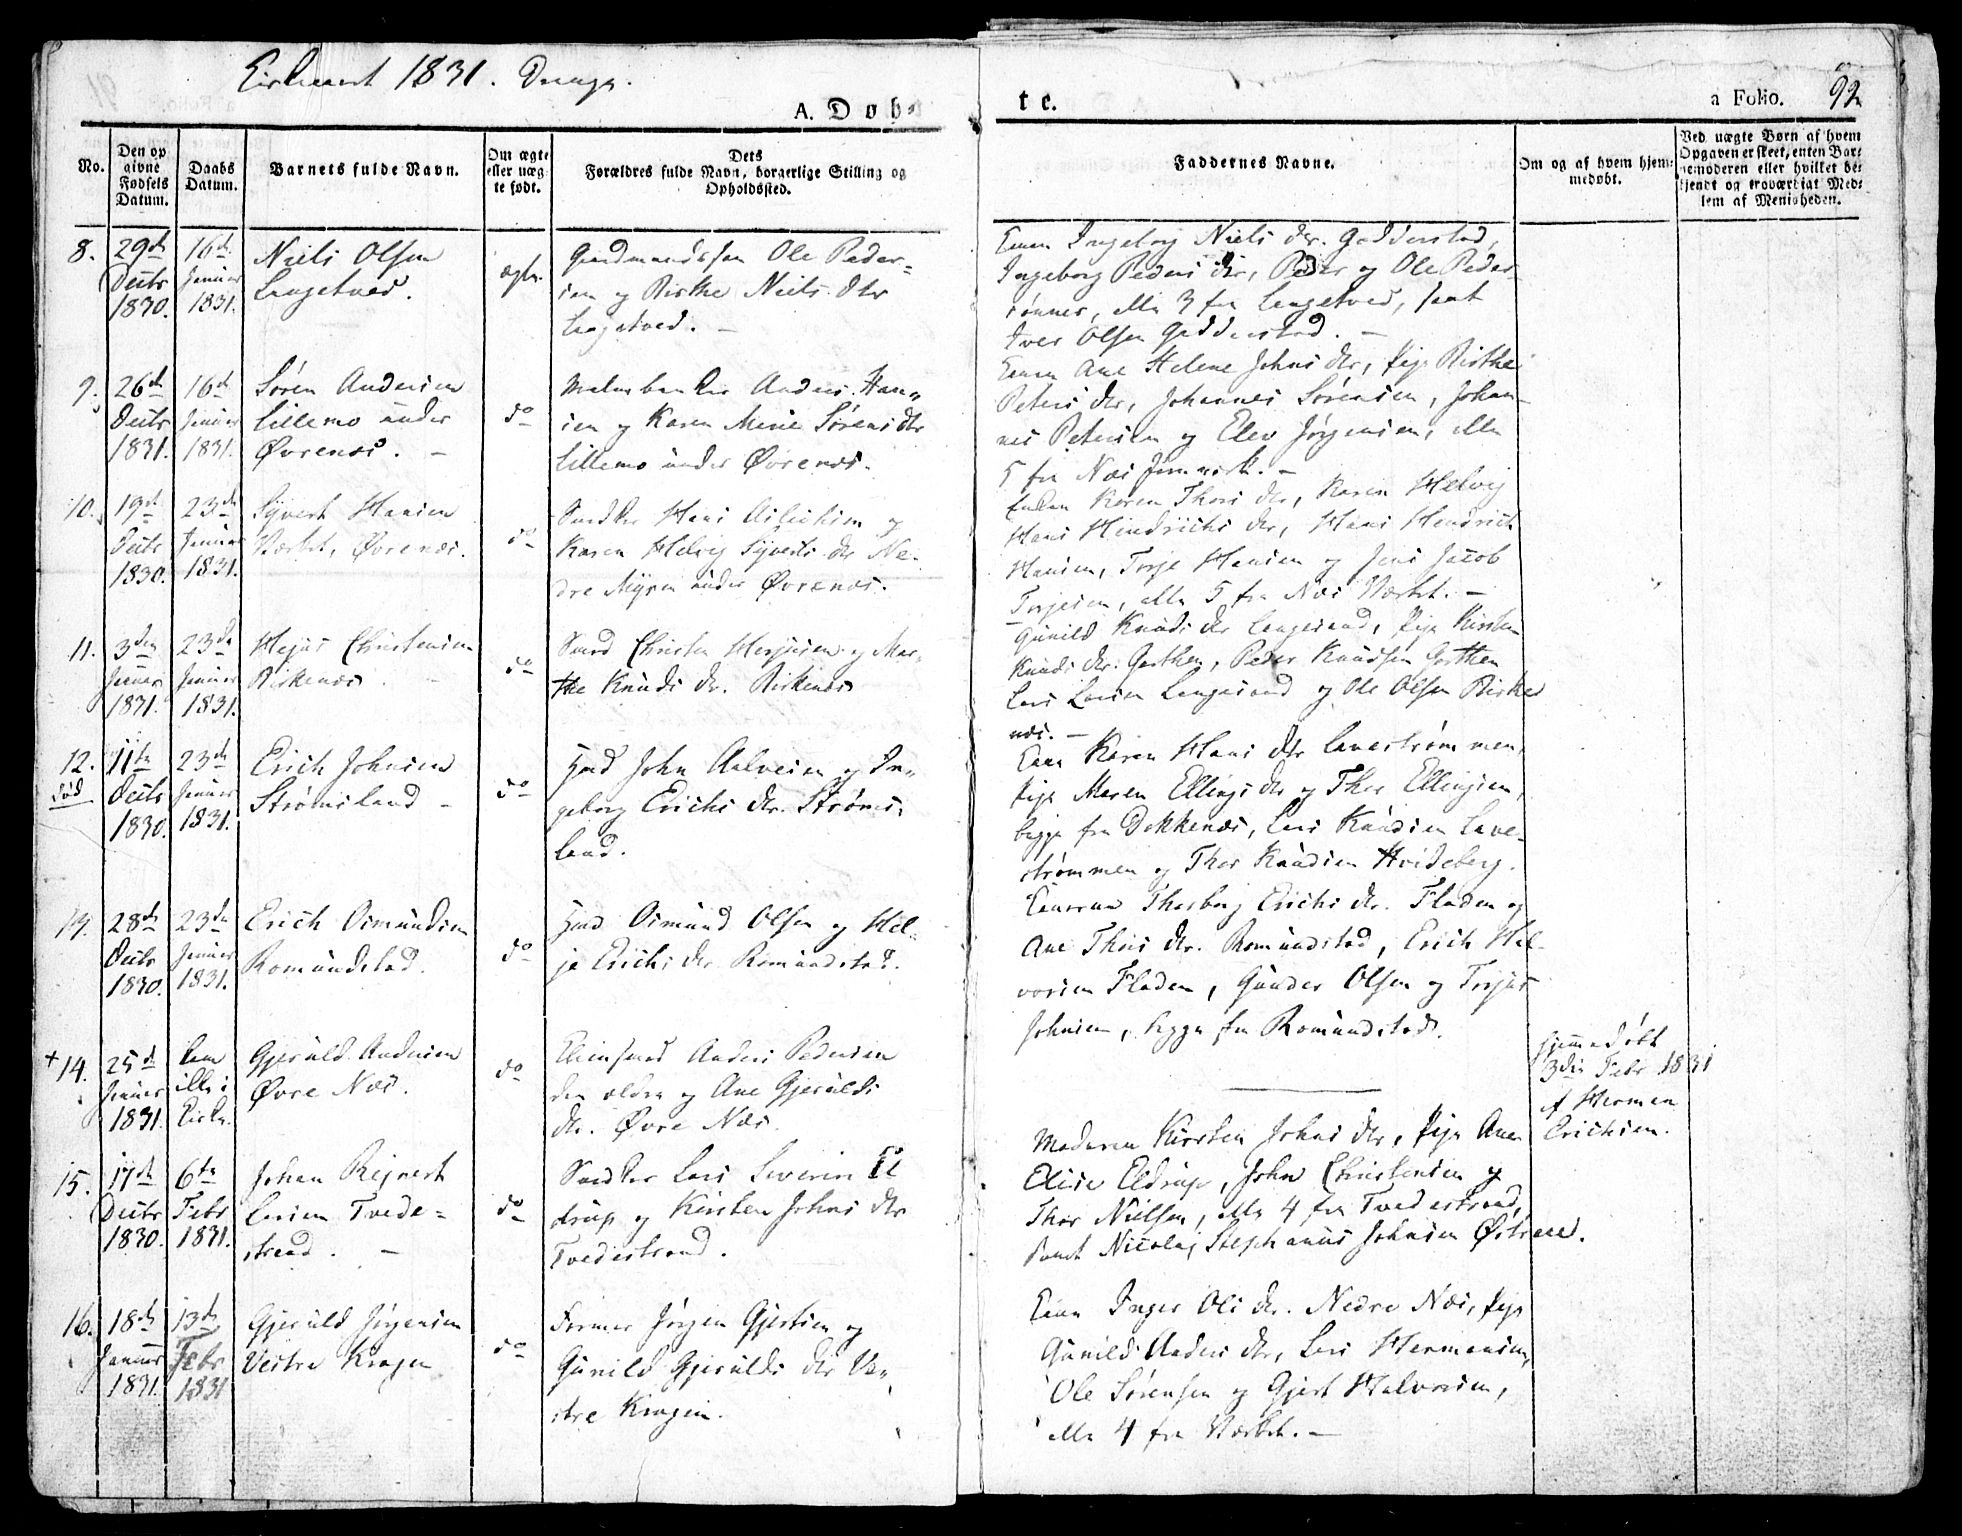 1831.
A. Døb
te.
a Folio. 92
No.
Den op
givne
Fødsels
Datum.
Daabs
Datum.
Barnets fulde Navn.
Om ægte
eller uæg
te født.
Dets
Forældres fulde Navn, borgerlige Stilling og
Opholdssted.
Faddernes Navne.
Om og af hvem hjem-
medøbt.
Ved uægte Børn af hvem
Opgaven er skeet, enten Bar-
nemoderen eller hvilket be-
kjendt og troværdigt Med-
lem af Menigheden.
8.
29de
Decbr
1830.
16de
Januar
1831.
Niels Olsen
Langetved.
ægte.
Gaardmandssøn Ole Peder-
sen og Birthe Niels Dtr
Langetved. -
Ingeborg Niels Dtr. Godderstad,
Ingeborg Peders Dtr, Peder og Ole Peder-
sønner, alle 3 fra Langetved, samt
Iver Olsen Godderstad. -
9.
26de
Decbr
1831.
16de
Januar
1831.
Søren Andersen
Lillemo under
Øvrenæs. -
do
Anders Han-
sen og Karen Marie Sørens dtr
Lillemo under Øvrenæs.
Ane Helene Johns Dtr, Pige Birthe
Peters Dtr, Johannes Sørensen, Johan-
nes Petersen og Elev Jørgensen, alle
5 fra Næs Jernværk. -
10.
19de
Decbr
1830.
23de
Januar
1831.
Syvert Hansen
Værket, Øvrenæs.
do
Hans og
Karen Helvig Syverts Dtr Ne-
dre Myren under Øvrenæs.
Karen Thors Dtr, Karen Helvig
Hans Hendrichs Dtr, Hans Hendrich
Hansen, Torje Hansen og Jens Jacob
Torjesen, alle 5 fra Næs Værket. -
11.
3die
Januar
1831.
23de
Januar
1831.
Christensen
Birkenæs. -
do
Christen og Mar-
the Knuds Dr. Birkenæs
Gunild Knuds Dtr Langesand, Pige Kirsten
Knuds Dr. Gosthen, Peder Knudsen Gosthen
Lars Larsen Langesand og Ole Olsen Birke
næs. -
12.
død
11te
Decbr
1830.
23de
Januar
1831.
Erich Johnsen
Strømsland -
do
John Aalvesen og In-
geborg Erichs Dr. Strøms-
land.
Karen Hans Dtr Lavestrømmen,
Pige Maren Ellings Dtr og Thor Ellingsen,
begge fra Dokkenæs, Lars Knudsen Lave-
strømmen og Thor Knudsen Hvideberg.
13.
28de
Decbr
1830.
23de
Januar
1831.
Erich Osmundsen
Romundstad.
do
Osmund Olsen og Hel-
je Erichs Dr Romundstad.
Thorborg Erichs Dr. Fladen og
Ane Thors Dtr. Romundstad, Erich Hal-
vorsen Fladen, Gunder Olsen og Torjus
Johnsen, begge fra Romundstad.
+ 14.
25de
Januar
1831.
kom
ikke i
Kirke.
Gjeruld Andersen
Øvre Næs.
do
Anders Pedersen
den ældre og Ane Gjerulds
Dtr. Øvre Næs.
hjemmedøbt
3die Febr. 1831
af Herman
Erichsen.
15.
17de
Decbr
1830.
6te
Febr
1831.
Johan Rejnert
Larsen Tvede-
strand. -
do
Lars Severin El
drup og Kirsten Johns Dtr
Tvedestrand.
Moderen Kirsten Johns Dtr, Pige Ane
Elise Eldrup, John Christensen og
Thor Nielsen, alle 4 fra Tvedestrand,
samt Nicolaj Stephanus Johnsen
16.
18de
Januar
1831.
13de
Febr
1831
Gjeruld Jørgensen
Vestre Kragen
do
Jørgen Gjertsen og
Gunild Gjerulds Dtr Ve-
stre Kragen.
Inger Ols Dr. Nedre Næs, Pige
Gunild Anders Dtr, Lars Hermansen,
Ole Sørensen og Gjert Halvorsen,
alle 4 fra Værket. -